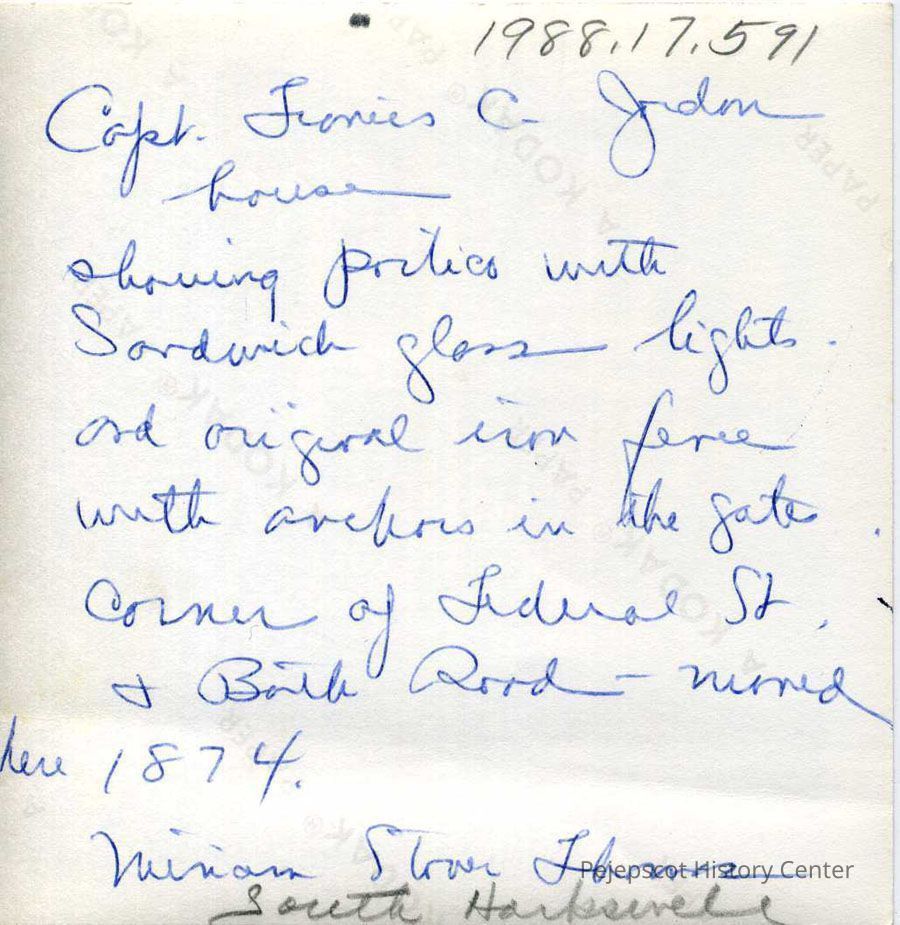 1988.17.591
Capt. Francis C. Jordan
house
showing portico with
Sandwich glass lights.
and original iron fence
with anchors in the gate.
Corner of Federal St.
+ Bath Road - moved
here 1874.
Miriam Stover Thomas
South Harpswell
Pejepscot History Center